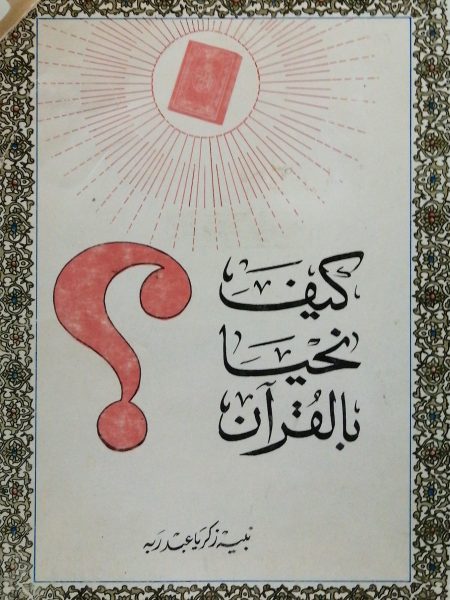 كيف
نحيا
بالقرآن
؟
نبيه زكريا عبد ربه